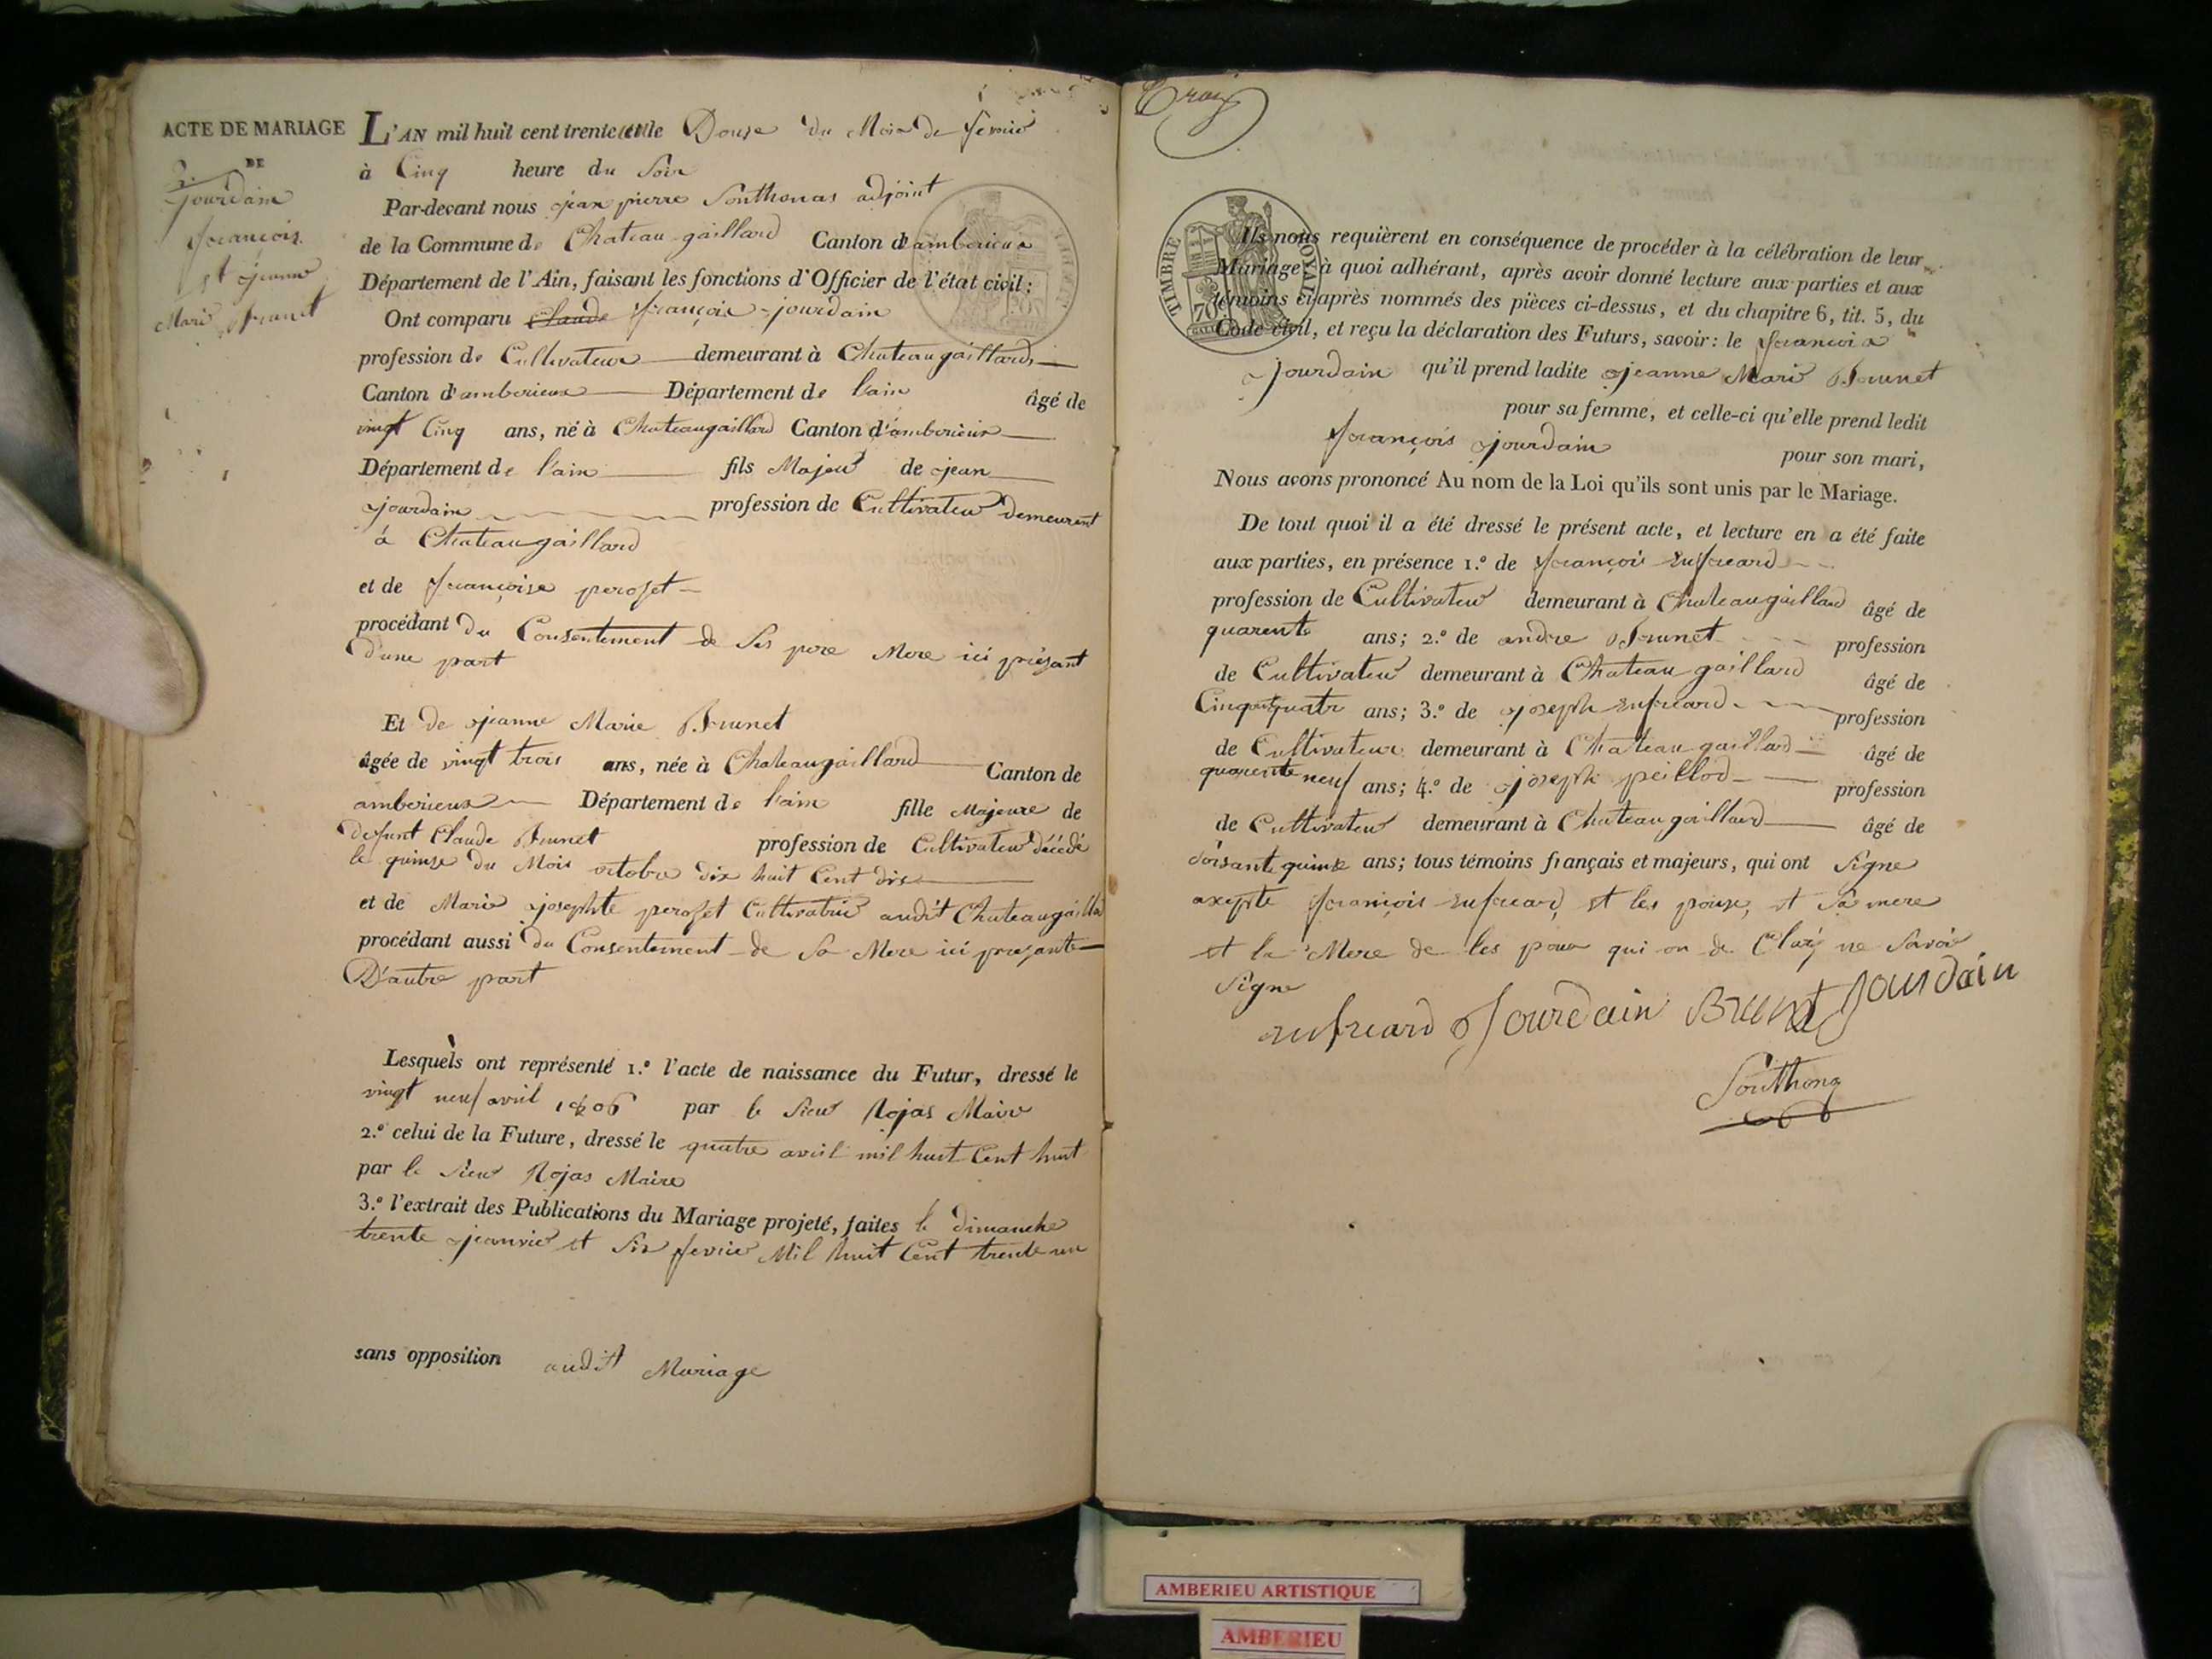 ACTE DE MARIAGE
DE
jourdain
francois
et jeanne
Marie Brunet
L'AN mil huit cent trente un le Douze du Mois de fevrié
à Cinq heure du Soir
Par-devant nous jean pierre Southonas adjoint
de la Commune de Chateau gaillard Canton d'amberieux
Département de l'Ain, faisant les fonctions d'Officier de l'état civil;
Ont comparu Claude françois jourdain
profession de Cultivateur demeurant à Chateaugaillard
Canton d'amberieux Département de l'ain âgé de
vingt Cinq ans, né à Chateaugaillard Canton d'amberieux
Département de l'ain fils Majeur de jean
jourdain profession de Cultivateur demeurent
à Chateaugaillard
et de françoise peroset
procédant du Consentement de Ses pere Mere ici présant
D'une part
Et de jeanne Marie Brunet
âgée de vingt trois ans, née à Chateaugaillard Canton de
amberieux Département de l'ain fille Majeure de
defunt Claude Brunet profession de Cultivateur décédé
le quinse du Mois octobre dix huit Cent dix
et de Marie josephte peroset Cultivatrice audit Chateaugailla
procédant aussi du Consentement de Sa Mere ici presante
D'autre part
Lesquels ont représenté 1.º l'acte de naissance du Futur, dressé le
vingt neuf avril 1806 par le Sieur Rojas Maire
2.º celui de la Future, dressé le quatre avril mil huit Cent huit
par le Sieur Rojas Maire
3.º l'extrait des Publications du Mariage projeté, faites le dimanche
trente jeanvié et Six fevrié Mil huit Cent trente un
sans opposition audit Mariage
TIMBRE ROYAL
70
Ils nous requièrent en conséquence de procéder à la célébration de leur
Mariage; à quoi adhérant, après avoir donné lecture aux parties et aux
témoins ci-après nommés des pièces ci-dessus, et du chapitre 6, tit. 5, du
Code civil, et reçu la déclaration des Futurs, savoir: le francois
jourdain qu'il prend ladite jeanne Marie Brunet
pour sa femme, et celle-ci qu'elle prend ledit
françois jourdain pour son mari,
Nous avons prononcé Au nom de la Loi qu'ils sont unis par le Mariage.
De tout quoi il a été dressé le présent acte, et lecture en a été faite
aux parties, en présence 1.º de françois Infreard
profession de Cultivateur demeurant à Chateaugaillard âgé de
quarente ans; 2.º de andre Brunet profession
de Cultivateur demeurant à Chateau gaillard âgé de
Cinquente quatr ans; 3.º de joseph Infreard profession
de Cultivateur demeurant à Chateau gaillard âgé de
quarente neuf ans; 4.º de joseph peillod profession
de Cultivateur demeurant à Chateau gaillard âgé de
soisante quinse ans; tous témoins français et majeurs, qui ont Signe
axepte françois Infreard et les pouse, et Sa mere
et la Mere de les poux qui on de Claré ne Savoir
Signe
Infreard Jourdain Brunet Jourdain
Southonas
AMBERIEU ARTISTIQUE
AMBERIEU